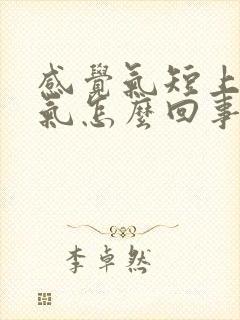 感覺氣短上
氣怎麼回事
李卓然